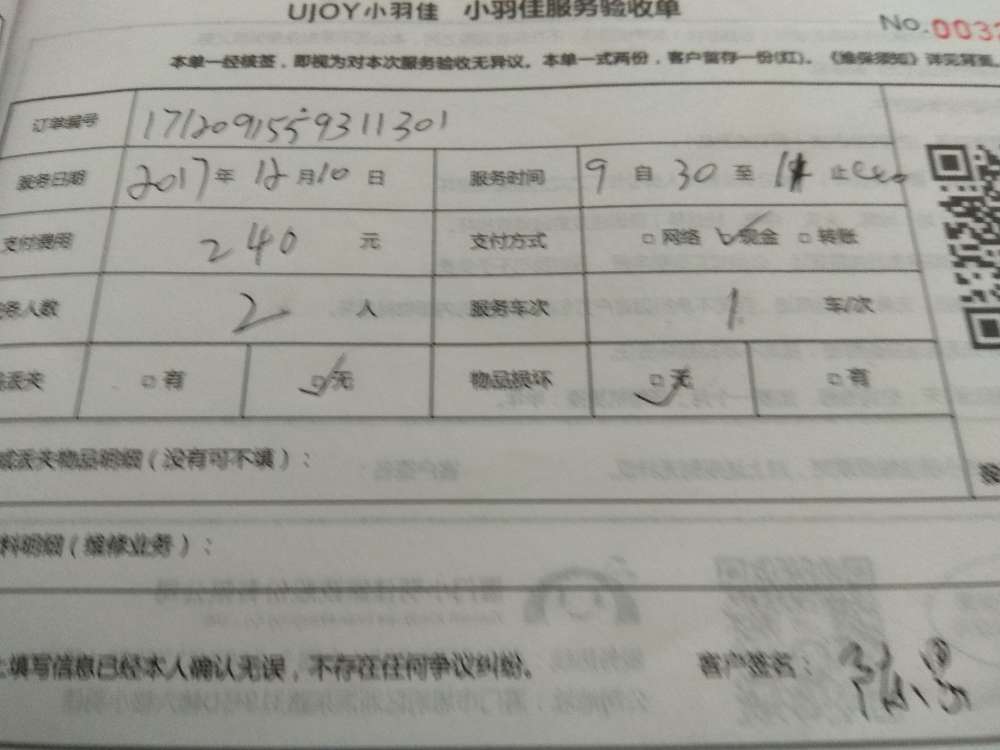 UJOY小羽佳 小羽佳服务验收单
No.003
本单一经核签，即视为对本次服务验收无异议。本单一式两份，客户留存一份(红)。《维保须知》详见背面。
订单编号 1712091559311301
服务日期 2017年12月10日 服务时间 9自30至 止
支付费用 240元 支付方式 □网络 ☑现金 □转账
务人数 2人 服务车次 1 车/次
丢失 □有 ☑无 物品损坏 ☑无 □有
或丢失物品明细（没有可不填）：
料明细（维修业务）：
上填写信息已经本人确认无误，不存在任何争议纠纷。 客户签名：